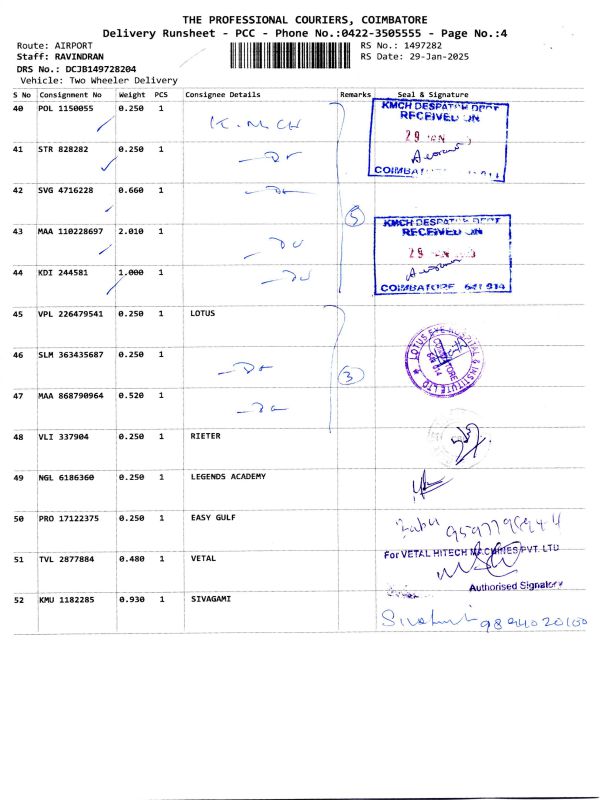 THE PROFESSIONAL COURIERS, COIMBATORE
Delivery Runsheet - PCC - Phone No.:0422-3505555 - Page No.:4
Route: AIRPORT RS No.: 1497282
Staff: RAVINDRAN RS Date: 29-Jan-2025
DRS No.: DCJB149728204
Vehicle: Two Wheeler Delivery
S No Consignment No Weight PCS Consignee Details Remarks Seal & Signature
40 POL 1150055 0.250 1 K.MCH KMCH DESPATCH DEPT
RECEIVED ON
29
COIMBATORE
41 STR 828282 0.250 1
42 SVG 4716228 0.660 1
5
43 MAA 110228697 2.010 1 KMCH DESPATCH DEPT
RECEIVED ON
29
44 KDI 244581 1.000 1
COIMBATORE 641 014
45 VPL 226479541 0.250 1 LOTUS
46 SLM 363435687 0.250 1 LOTUS EYE HOSPITAL & INSTITUTE LTD
3
47 MAA 868790964 0.520 1
48 VLI 337904 0.250 1 RIETER
49 NGL 6186360 0.250 1 LEGENDS ACADEMY
50 PRO 17122375 0.250 1 EASY GULF
51 TVL 2877884 0.480 1 VETAL For VETAL HITECH MACHINES PVT. LTD
Authorised Signatory
52 KMU 1182285 0.930 1 SIVAGAMI
9894020100